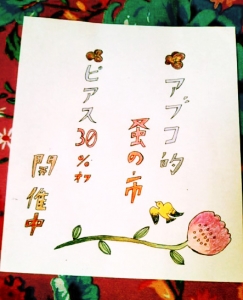 アブコ的
蚤の市
ピアス30%オフ
開催中